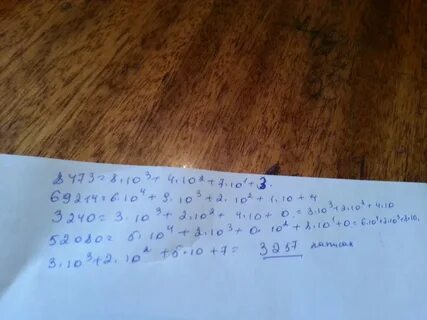 8473=8·10³+4·10²+7·10¹+3.
69214=6·10⁴+9·10³+2·10²+1·10+4
3240=3·10³+2·10²+4·10+0,=3·10³+2·10²+4·10
52080=5·10⁴+2·10³+0·10²+8·10¹+0=5·10⁴+2·10³+8·10,
3·10³+2·10²+5·10+7=3257